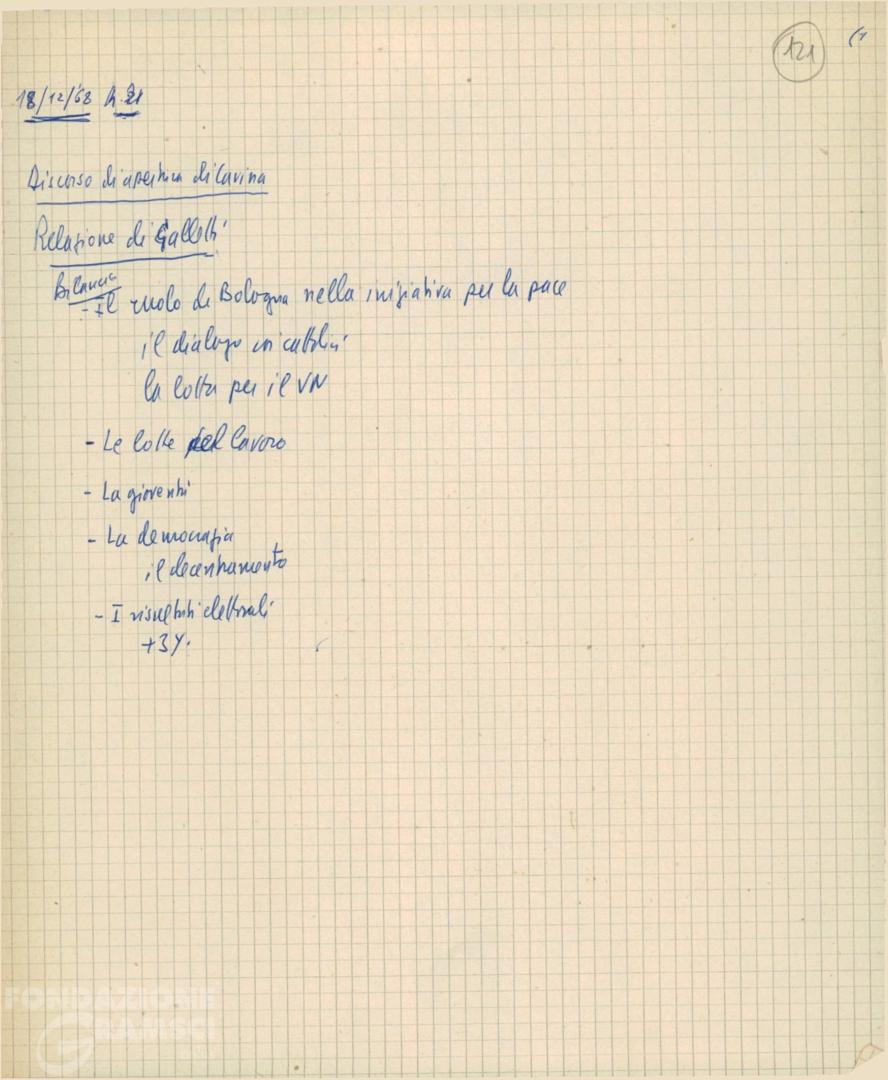 121 (1
18/12/'68 h. 21
Discorso di apertura di Cavina
Relazione di Galletti
Bilancio
- Il ruolo di Bologna nella iniziativa per la pace
il dialogo coi cattolici
la lotta per il VN
- Le lotte del lavoro
- La gioventù
- La democrazia
il decentramento
- I risultati elettorali
+3%
FONDAZIONE
GRAMSCI